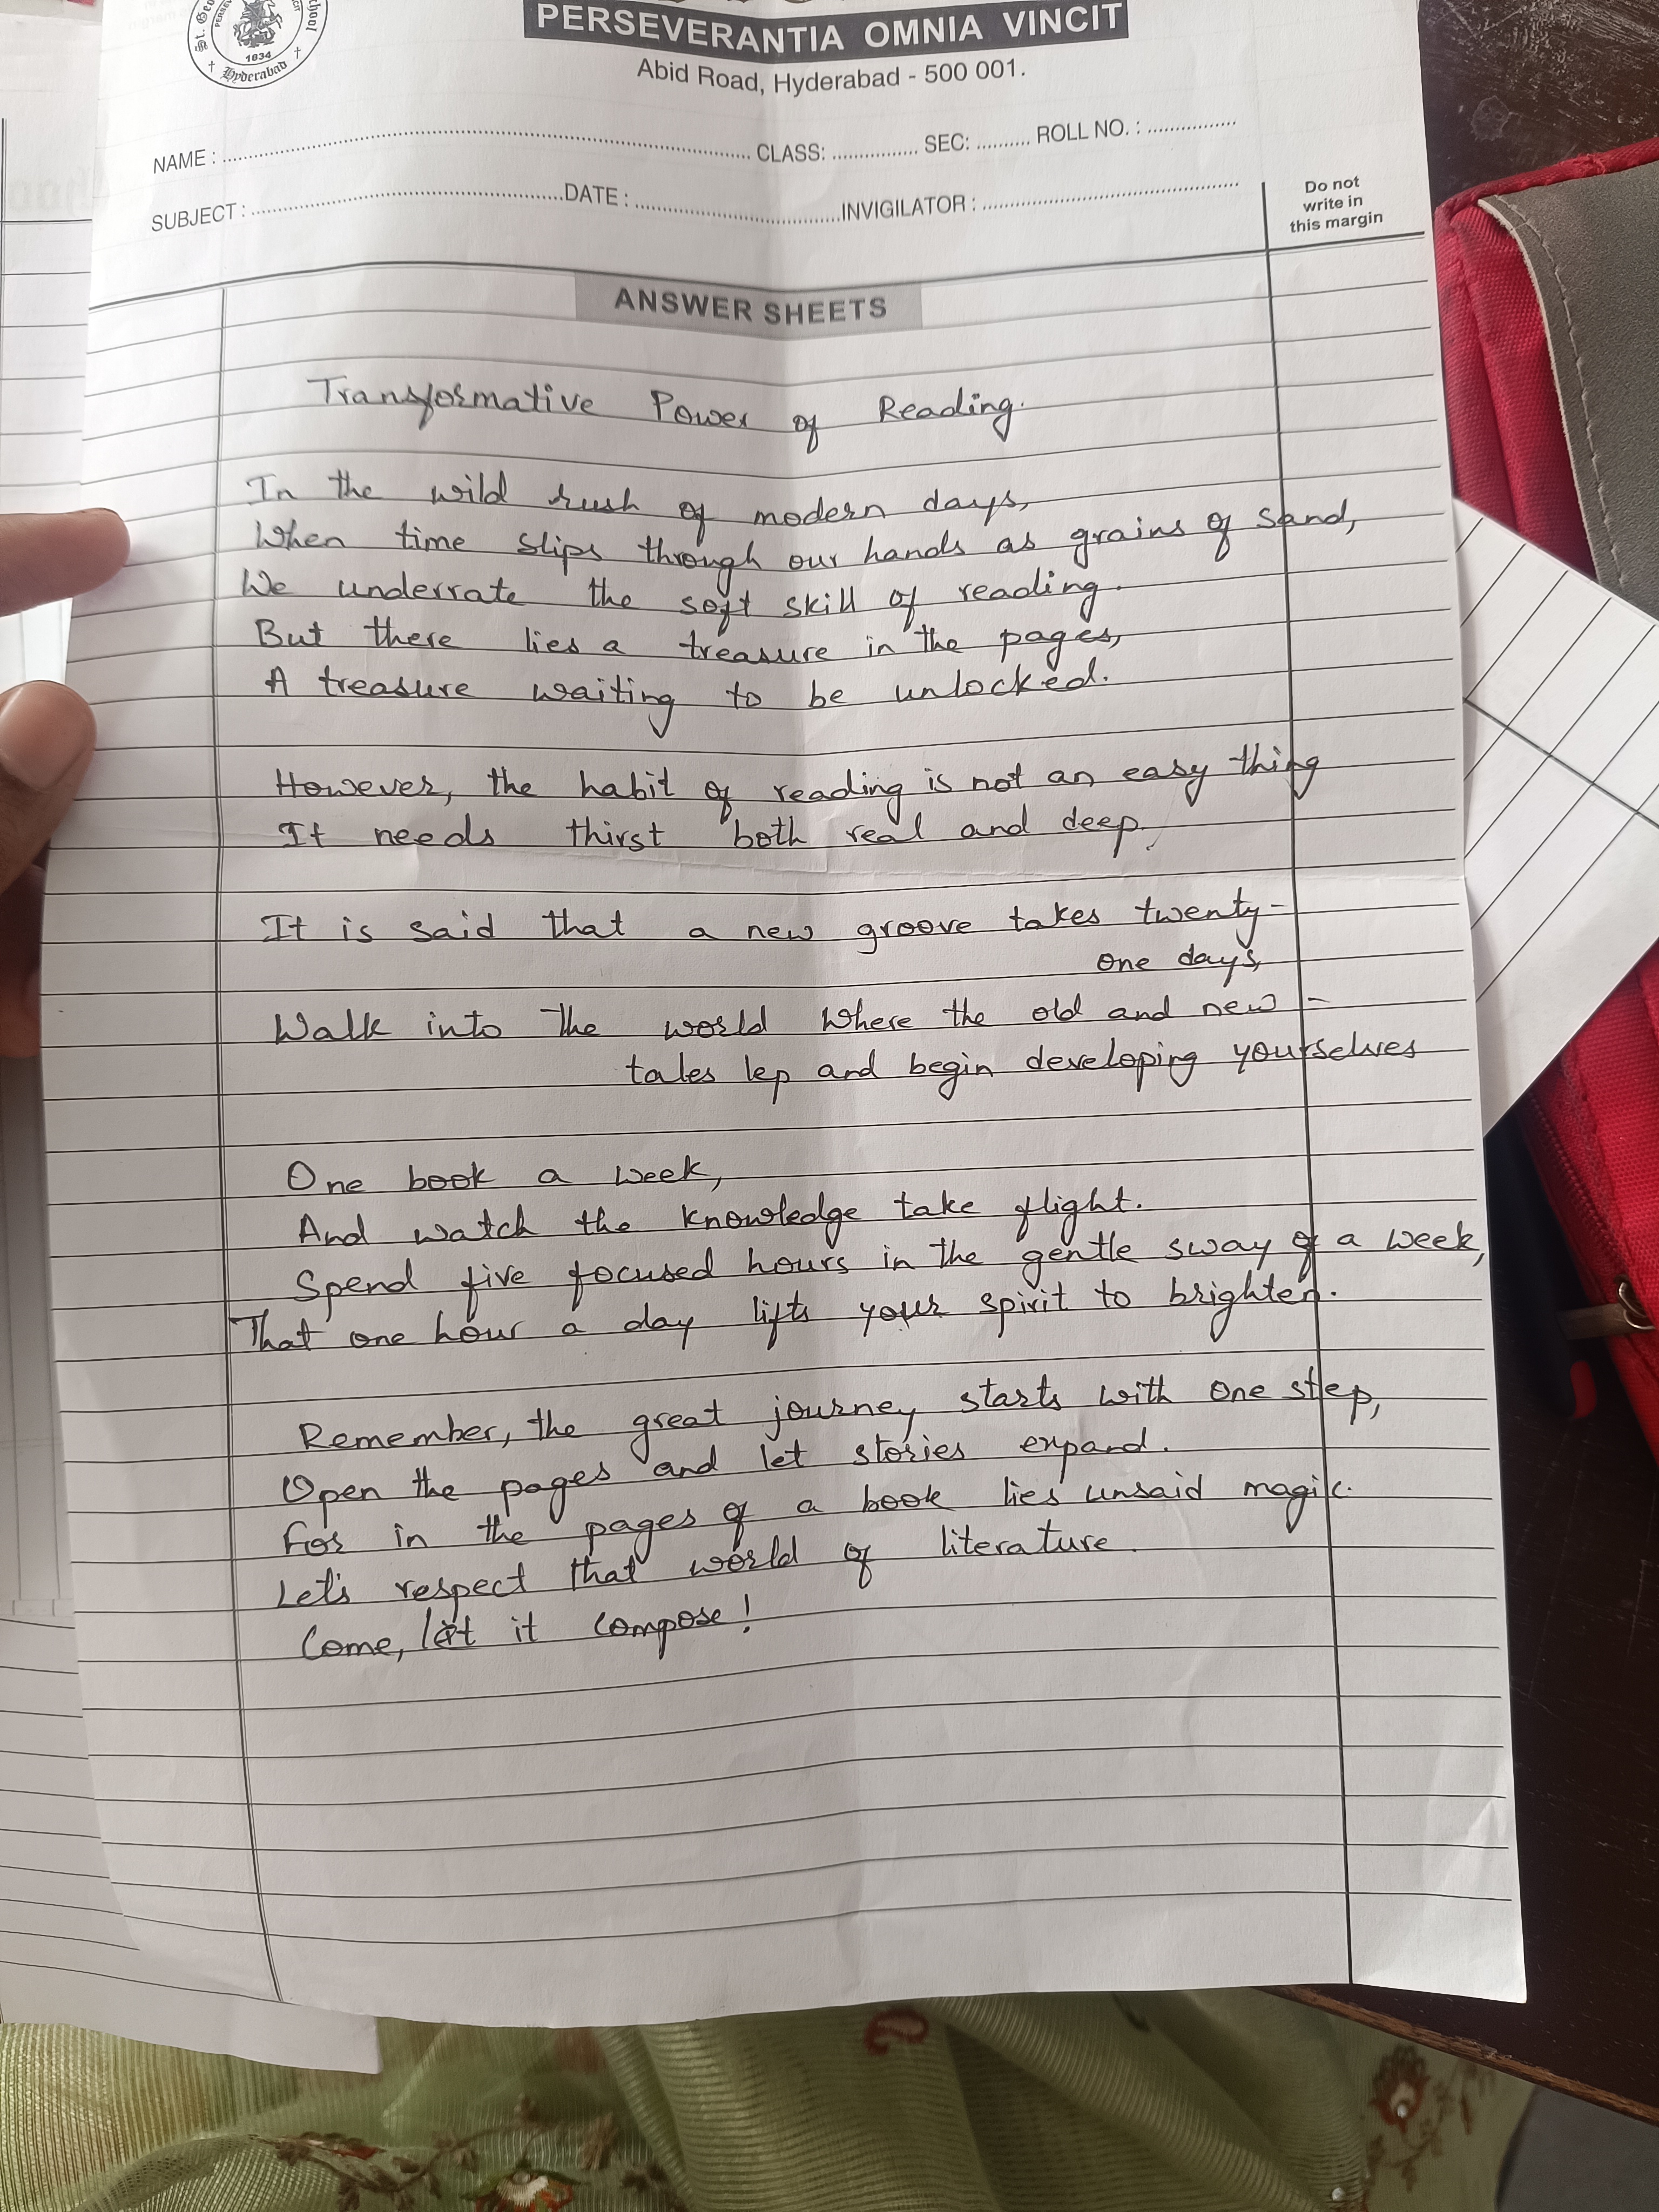 St. Geo
chool
1834
Hyderabad
PERSEVERANTIA OMNIA VINCIT
Abid Road, Hyderabad - 500 001.
NAME : CLASS: SEC: ROLL NO. :
SUBJECT : DATE : INVIGILATOR :
Do not
write in
this margin
ANSWER SHEETS
Transformative Power of Reading.
In the wild rush of modern days,
When time slips through our hands as grains of sand,
We underrate the soft skill of reading.
But there lies a treasure in the pages,
A treasure waiting to be unlocked.
However, the habit of reading is not an easy thing
It needs thirst both real and deep.
It is said that a new groove takes twenty-
one days,
Walk into the world where the old and new -
tales lep and begin developing yourselves
One book a week,
And watch the knowledge take flight.
Spend five focused hours in the gentle sway of a week,
That one hour a day lifts your spirit to brighten.
Remember, the great journey starts with one step,
Open the pages and let stories expand.
For in the pages of a book lies unsaid magic.
Let's respect that world of literature.
Come, let it compose!